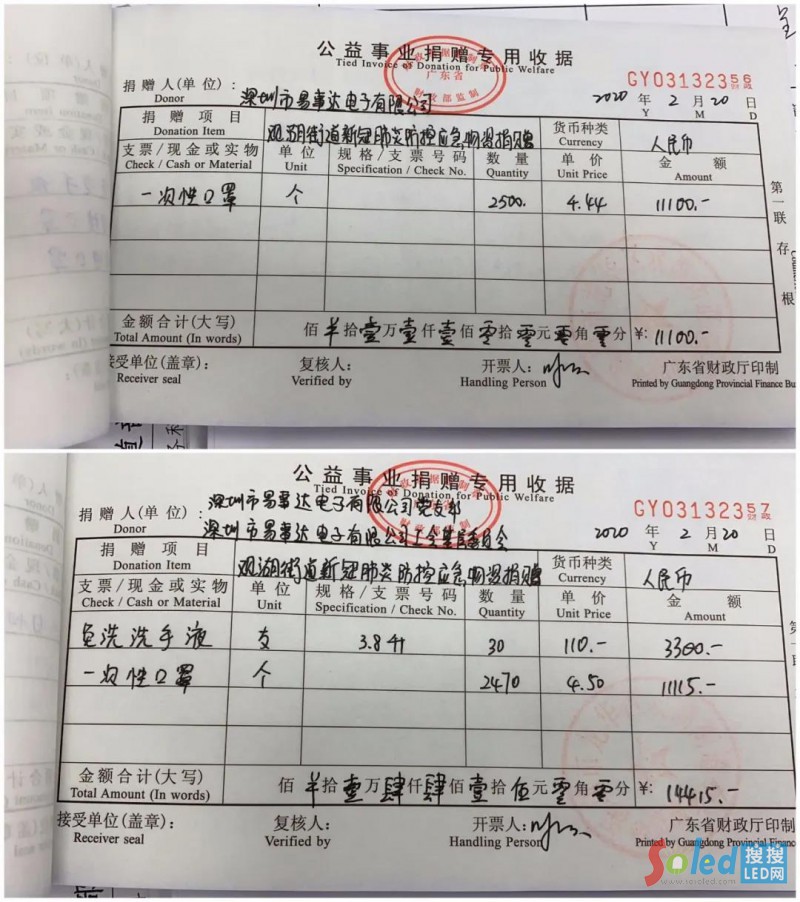 公益事业捐赠专用收据
Tied Invoice of Donation for Public Welfare
广东省
财政部监制
GY03132356
捐赠人(单位): 深圳市易事达电子有限公司
Donor
2020 年 2 月 20 日
Y M D
捐赠项目 观湖街道新冠肺炎防控应急物资捐赠 货币种类 人民币
Donation Item Currency
支票/现金或实物 单位 规格/支票号码 数量 单价 金额
Check / Cash or Material Unit Specification / Check No. Quantity Unit Price Amount
一次性口罩 个 2500. 4.44 11100.-
第一联 存根
金额合计(大写) 佰 拾壹万壹仟壹佰零拾零元零角零分 ¥: 11100.-
Total Amount (In words)
接受单位(盖章): 复核人: 开票人: 广东省财政厅印制
Receiver seal Verified by Handling Person Printed by Guangdong Provincial Finance Bu
公益事业捐赠专用收据
Tied Invoice of Donation for Public Welfare
财政部监制
GY03132357
捐赠人(单位): 深圳市易事达电子有限公司党支部
Donor 深圳市易事达电子有限公司工会基层委员会
2020 年 2 月 20 日
Y M D
捐赠项目 观湖街道新冠肺炎防控应急物资捐赠 货币种类 人民币
Donation Item Currency
支票/现金或实物 单位 规格/支票号码 数量 单价 金额
Check / Cash or Material Unit Specification / Check No. Quantity Unit Price Amount
免洗洗手液 支 3.8升 30 110.- 3300.-
一次性口罩 个 2470 4.50 11115.-
金额合计(大写) 佰 拾壹万肆仟肆佰壹拾伍元零角零分 ¥: 14415.-
Total Amount (In words)
接受单位(盖章): 复核人: 开票人: 广东省财政厅印制
Receiver seal Verified by Handling Person Printed by Guangdong Provincial Finance
Soled 搜搜LED网